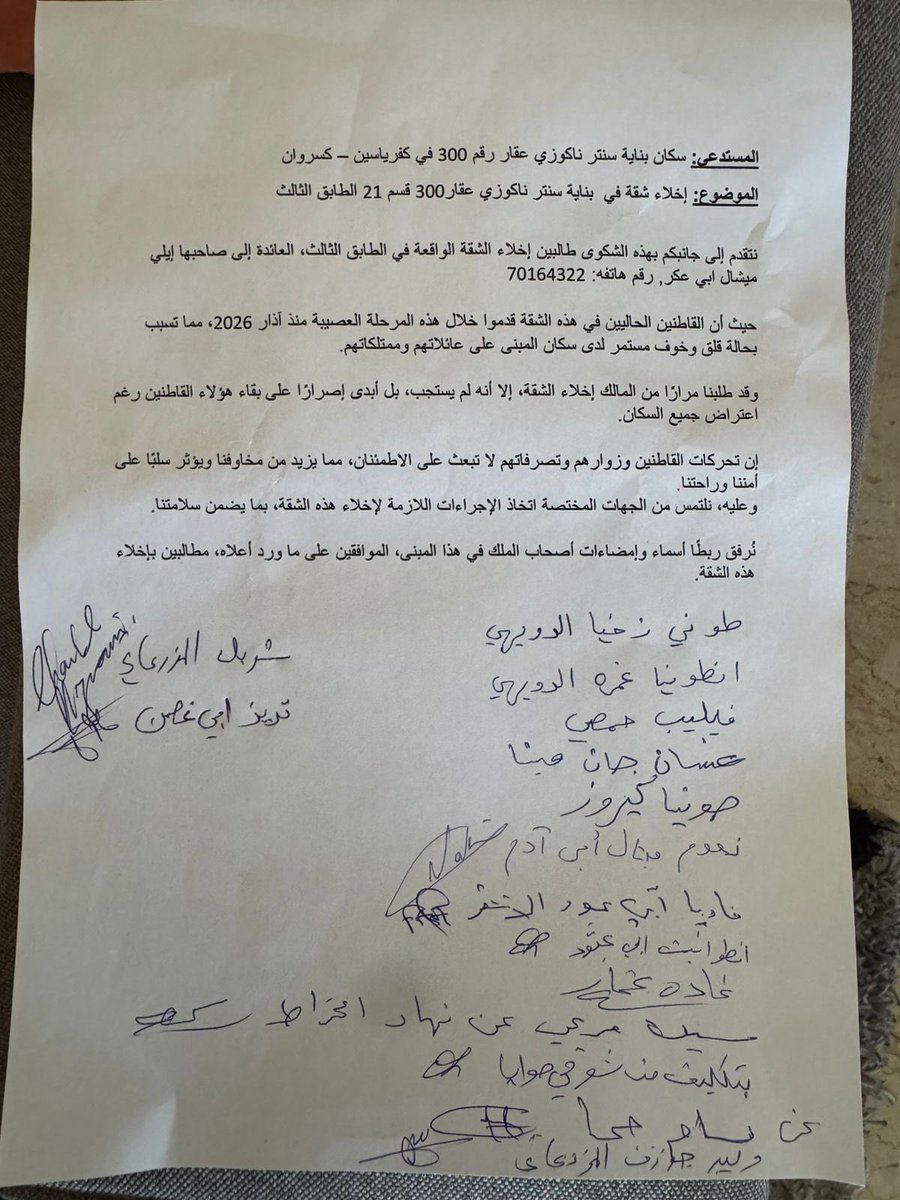 المستدعي: سكان بناية سنتر ناكوزي عقار رقم 300 في كفرياسين – كسروان
الموضوع: إخلاء شقة في بناية سنتر ناكوزي عقار300 قسم 21 الطابق الثالث
نتقدم إلى جانبكم بهذه الشكوى طالبين إخلاء الشقة الواقعة في الطابق الثالث، العائدة إلى صاحبها إيلي
ميشال ابي عكر, رقم هاتفه: 70164322
حيث أن القاطنين الحاليين في هذه الشقة قدموا خلال هذه المرحلة العصيبة منذ آذار 2026، مما تسبب
بحالة قلق وخوف مستمر لدى سكان المبنى على عائلاتهم وممتلكاتهم.
وقد طلبنا مرارًا من المالك إخلاء الشقة، إلا أنه لم يستجب، بل أبدى إصرارًا على بقاء هؤلاء القاطنين رغم
اعتراض جميع السكان.
إن تحركات القاطنين وزوارهم وتصرفاتهم لا تبعث على الاطمئنان، مما يزيد من مخاوفنا ويؤثر سلبًا على
أمننا وراحتنا.
وعليه، نلتمس من الجهات المختصة اتخاذ الإجراءات اللازمة لإخلاء هذه الشقة، بما يضمن سلامتنا.
نُرفق ربطًا أسماء وإمضاءات أصحاب الملك في هذا المبنى، الموافقين على ما ورد أعلاه، مطالبين بإخلاء
هذه الشقة.
طوني زخيا الدويهي
انطونيا غمره الدويهي
فيليب حمصي
غسان جان مينا
صونيا كيروز
نعوم ميشال أبي آدم
فاديا أبي عبود الاشقر
انطوانيت ابي عبود
غاده
مرعي عن نهاد الخراط
بتكليف من شوقي صوايا
عن
وليد جوزف المزرعاني
شربل المزرعاني
تريز ابي غصن